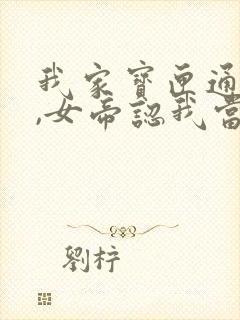 我家寶匣通
,女帝認我當
劉梓